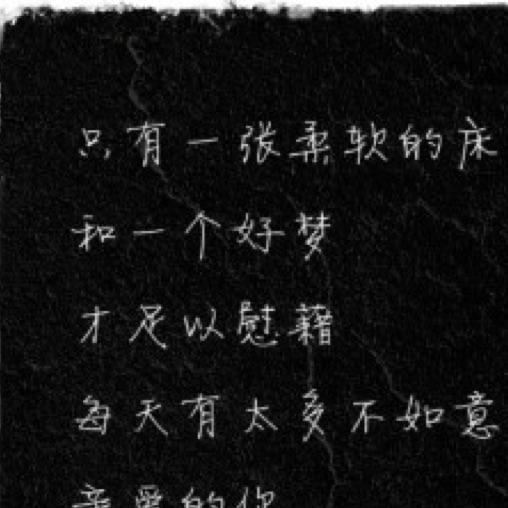 只有一张柔软的床
和一个好梦
才足以慰藉
每天有太多不如意
亲爱的你